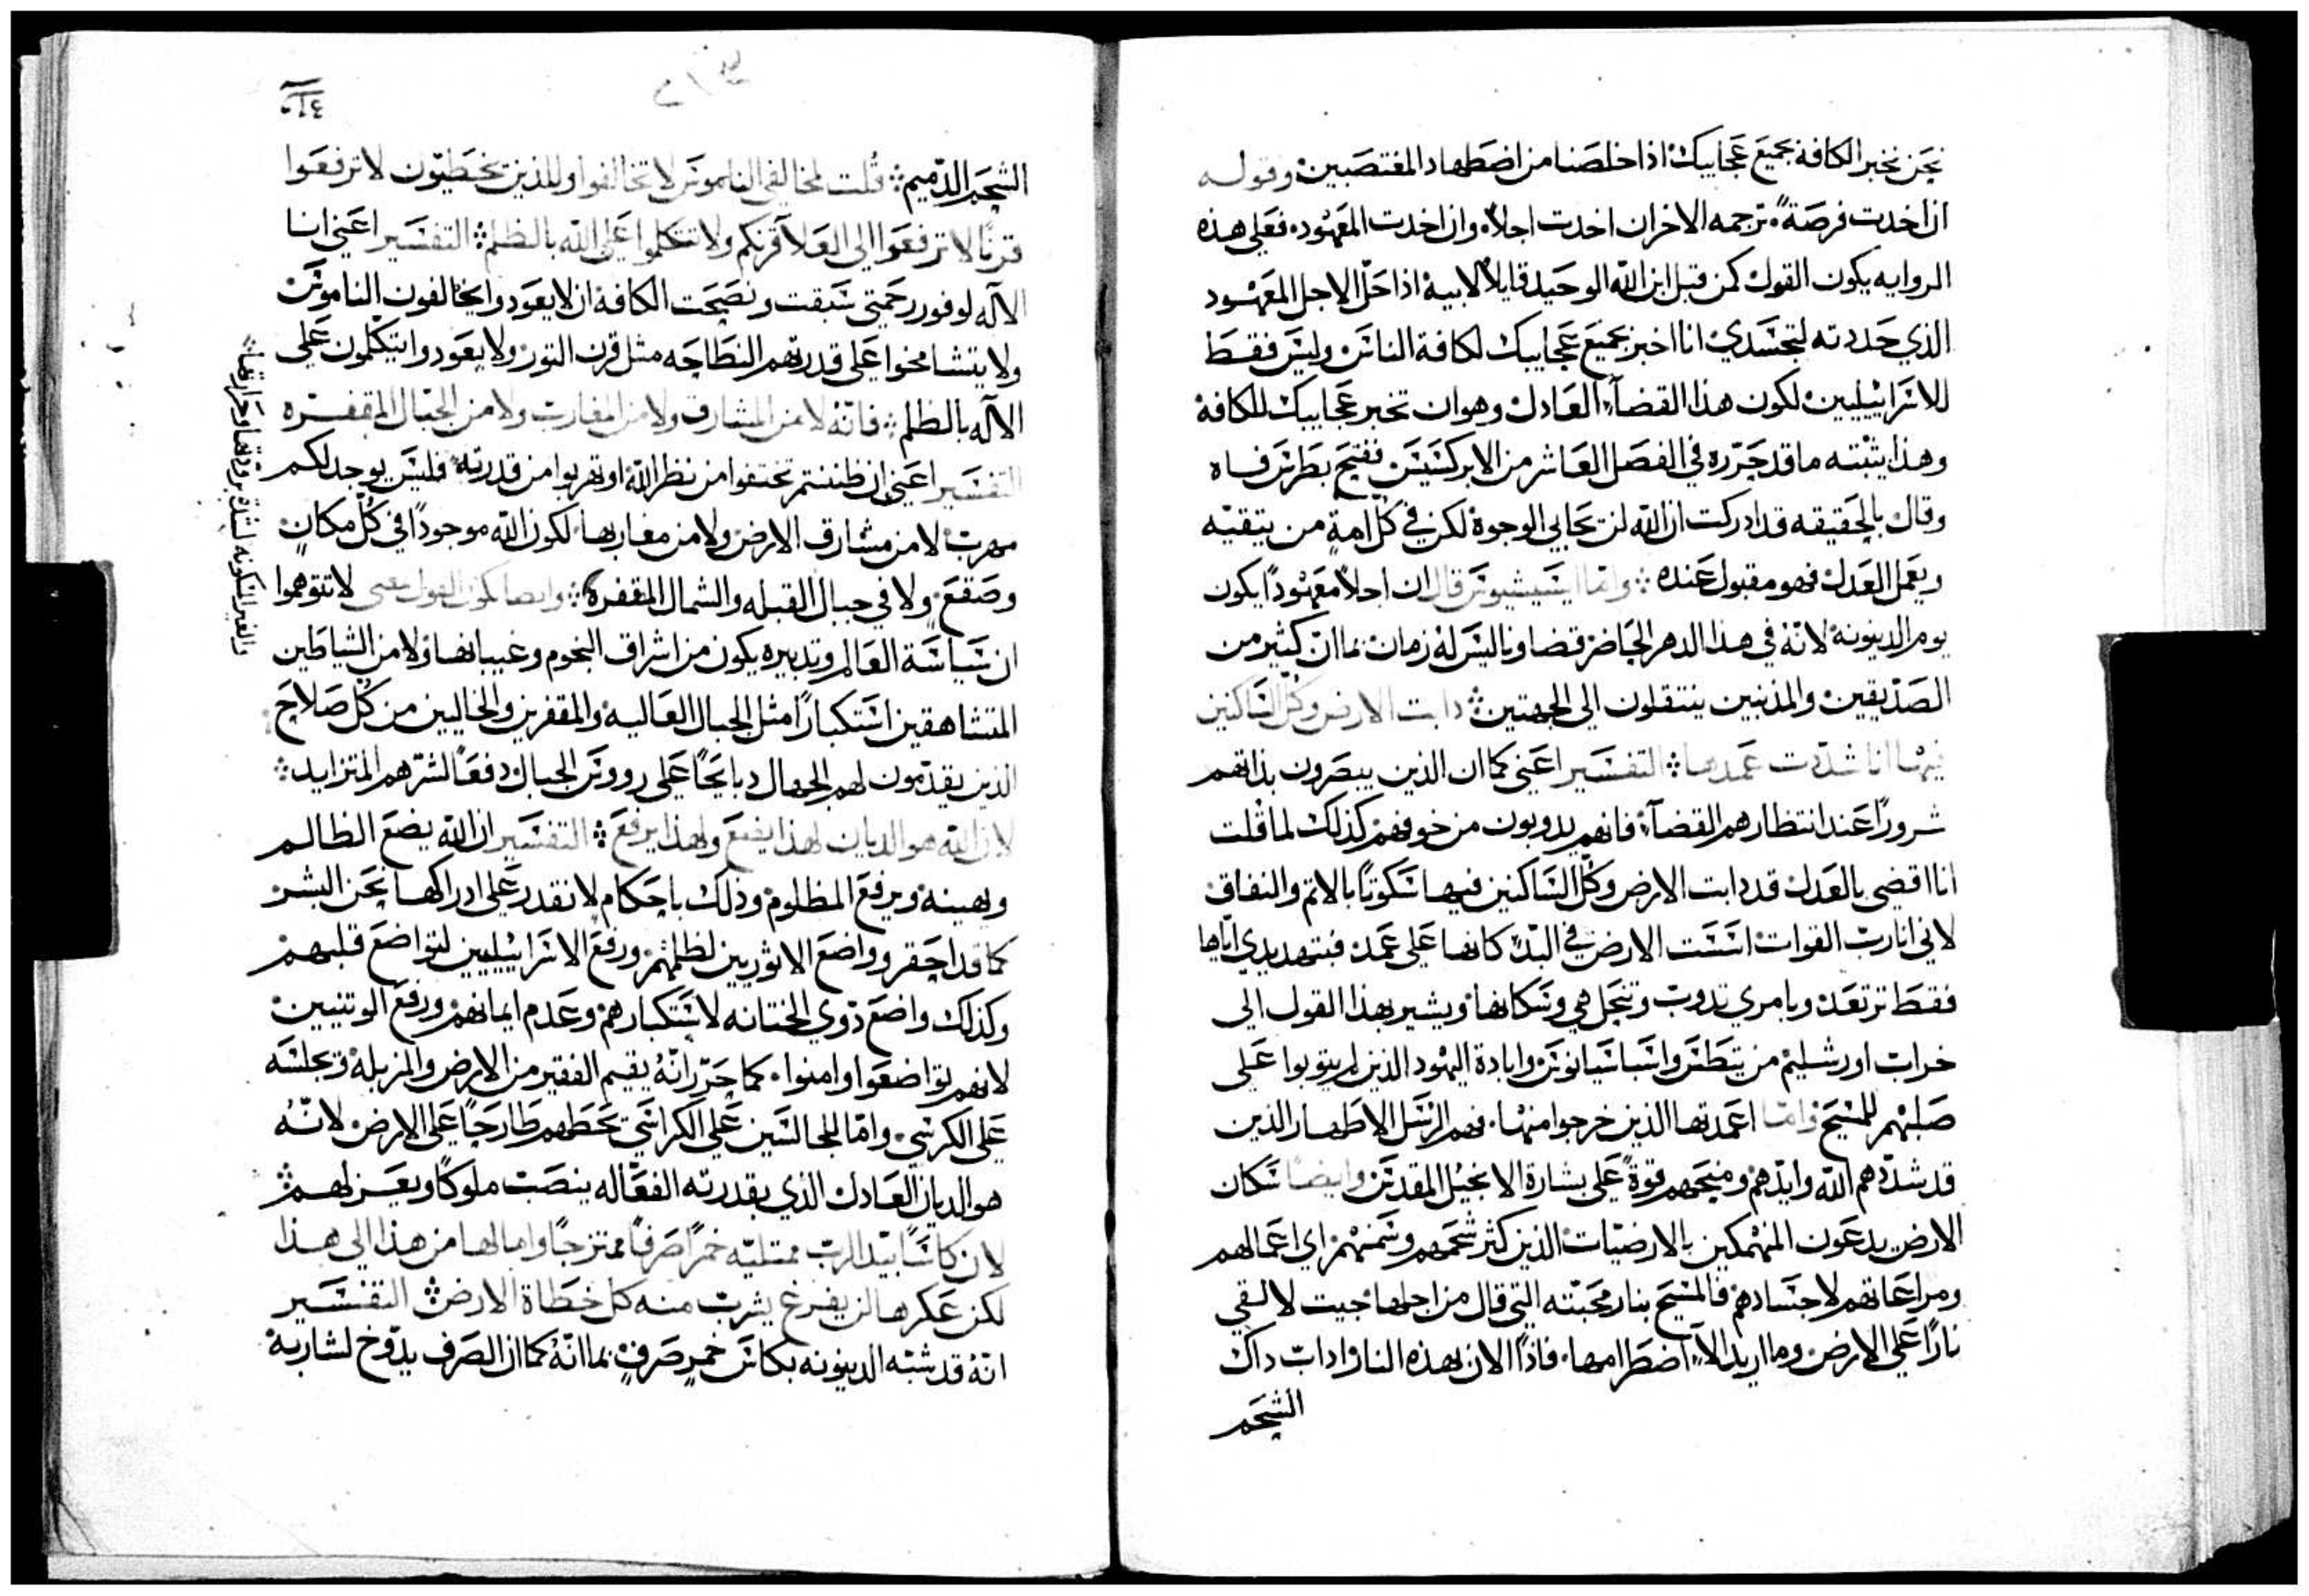 نحن نخبر الكافة بجميع عجايبك اذا خلصنا من اضطهاد المغتصبين وقوله
ان اخدت فرصةً ترجمه الاخر ان اخدت اجلاً وان اخدت المعهود فعلى هذه
الروايه يكون القول كمن قبل ابن الله الوحيد قايلاً لابيه اذا حل الاجل المعهود
الذي حددته لتجسدي انا اخبر بجميع عجايبك لكافة الناس وليس فقط
للاسرائيليين لكون هذا القضاء العادل وهو ان تخبر عجايبك للكافة
وهذا يثبته ما قد حرره في الفصل العاشر من الابركسيس ففتح بطرس فاه
وقال بالحقيقه قد ادركت ان الله لن يحابي الوجوه لكن في كل امةٍ من يتقيه
ويعمل العدل فهو مقبول عنده واما ايسيشيوس قال ان اجلاً معهودًا يكون
يوم الدينونه لانه في هذا الدهر الحاضر قضاونا ليس له زمان بما ان كثير من
الصديقين والمذنبين ينتقلون الى الجهتين دابت الارض وكل الساكنين
فيها انا شددت عمدها التفسير اعني كما ان الذين يبصرون بذاتهم
شرورًا عند انتظارهم القضاء فانهم يدوبون من خوفهم كذلك لما قلت
انا اقضي بالعدل قد دابت الارض وكل الساكنين فيها سكونًا بالاثم والنفاق
لاني انا رب القوات اسست الارض في البدء كانها على عمد فبتهديدي اياها
فقط ترتعد وبامري تدوب وتنحل هي وسكانها ويشير بهذا القول الى
خراب اورشليم من تيطس واسباسيانوس وابادة اليهود الذين لم يتوبوا على
صلبهم للمسيح واما اعمدتها الذين خرجوا منها فهم الرسل الاطهار الذين
قد شددهم الله وايدهم ومنحهم قوةً على بشارة الانجيل المقدس وايضًا سكان
الارض يدعون المنهمكين بالارضيات الذين كثر شحمهم وسمنهم اي اعمالهم
ومراعاتهم لاجسادهم فالمسيح بنار محبته التي قال من اجلها جيت لالقي
نارًا على الارض وما اريد الا اضطرامها فاذًا الان بهذه النار اداب داك
الشحم
٢١٤
الشحم الذميم قلت لمخالفي الناموس لا تخالفوا وللذين يخطيون لا ترفعوا
قرنًا لا ترفعوا الى العلا قرنكم ولا تتكلموا على الله بالظلم التفسير اعني انا
الآله لوفور رحمتي سبقت ونصحت الكافة ان لا يعودوا يخالفون الناموس
ولا يتشامخوا على قدرتهم النطاحه مثل قرن الثور ولا يعودوا يتكلمون على
الآله بالظلم فانه لا من المشارق ولا من المغارب ولا من الجبال المقفره
التفسير اعني ان ظننتم تختفوا من نظر الله او تهربوا من قدرته فليس يوجد لكم
مهرب لا من مشارق الارض ولا من مغاربها لكون الله موجودًا في كل مكانٍ
وصقع ولا في جبال القبله والشمال المقفره وايضا يكون القول بمعنى لا تتوهموا
ان سياسة العالم وتدبيره يكون من اشراق النجوم وغيباتها ولا من الشياطين
المتشاهقين استكبارًا مثل الجبال العاليه والمقفرين والخاليين من كل صلاح
الذين يقدمون لهم الجهال دبايحًا على رووس الجبال دفعًا لشرهم المتزايد
لان الله هو الديان لهذا يضع ولهذا يرفع التفسير ان الله يضع الظالم
ويهينه ويرفع المظلوم وذلك باحكام لا نقدر على ادراكها نحن البشر
كما قد احقر وواضع الاثوريين لظلمهم ورفع الاسرائيليين لتواضع قلبهم
وكذلك واضع ذوي الختانه لاستكبارهم وعدم ايمانهم ورفع الوتنيين
لانهم تواضعوا وامنوا كما حرر انه يقيم الفقير من الارض والمزبلة ويجلسه
على الكرسي واما للجالسين على الكراسي يحطهم طارحًا على الارض لانه
هو الديان العادل الذي بقدرته الفعاله ينصب ملوكًا ويعزلهم
لان كاسًا بيد الرب ممتليه خمرًا صرفًا ممتزجًا وامالها من هذا الى هذا
لكن عكرها لن يفرغ يشرب منه كل خطاة الارض التفسير
انه قد شبه الدينونه بكاس خمرٍ صرفٍ بما انه كما ان الصرف يدوخ لشاربه